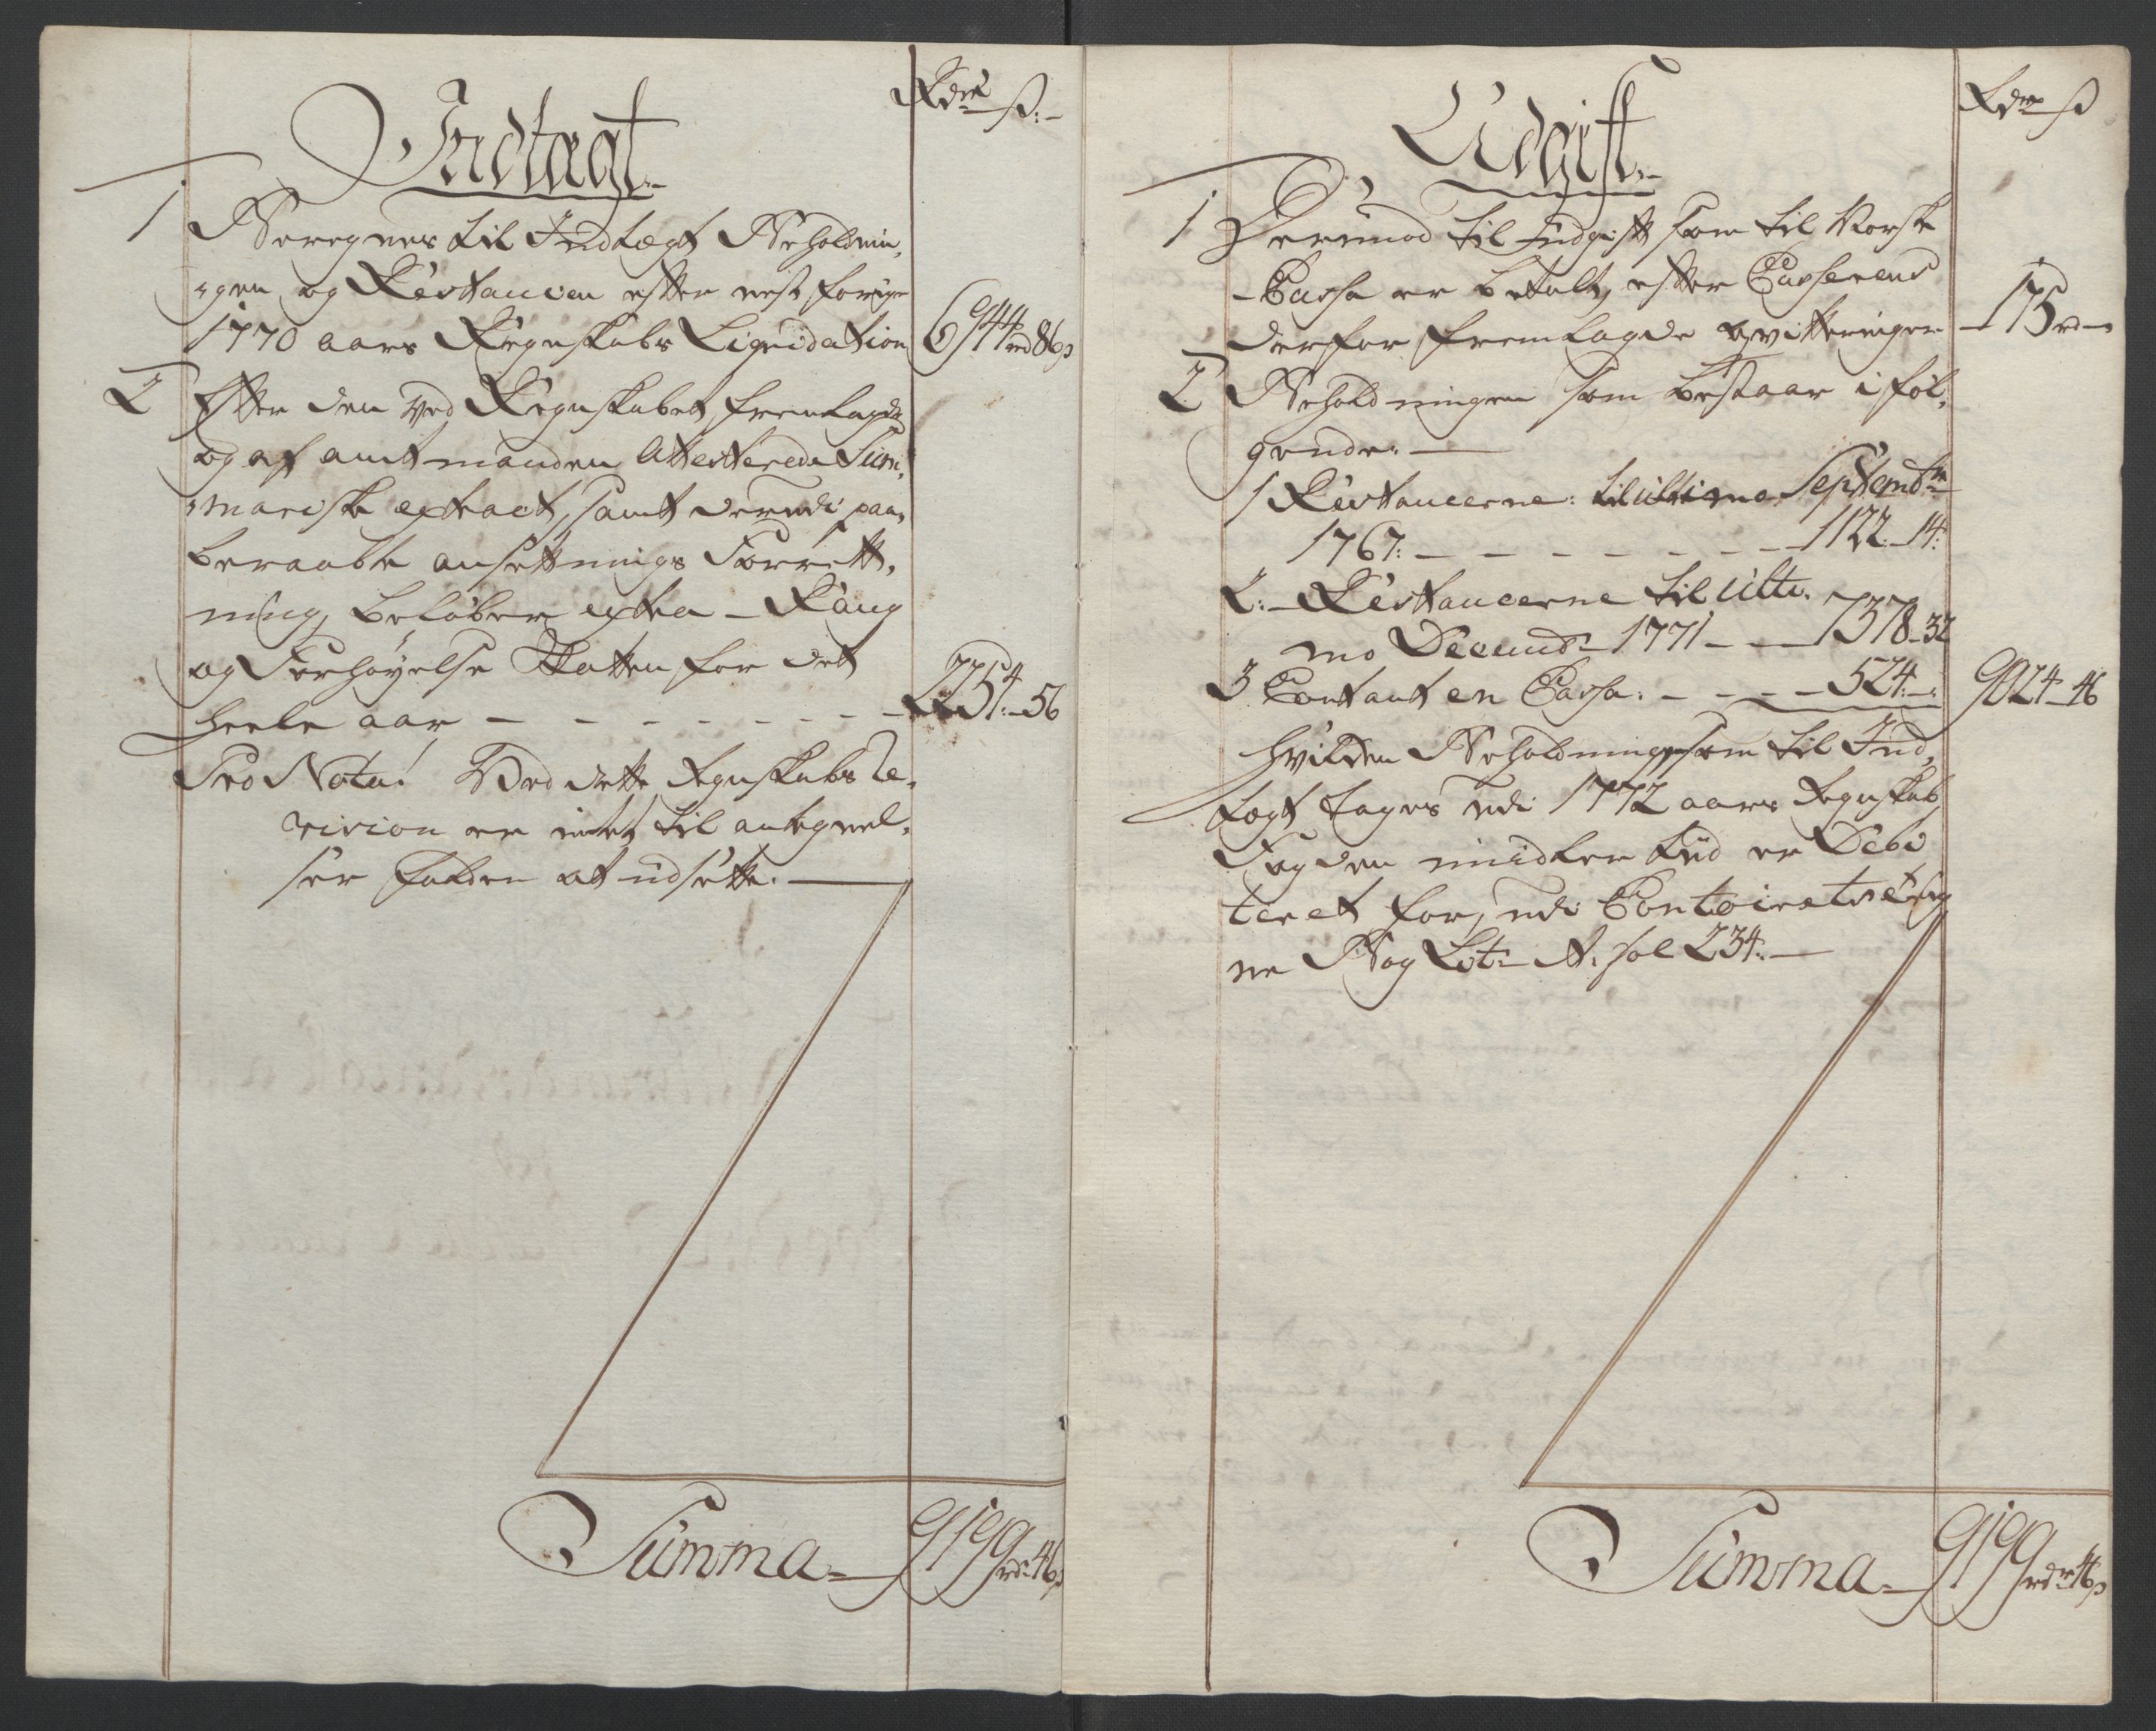 Indtægt
Rdr ß:
1 Beregnes til Indtægt Beholdnin,
,gen og Restancen efter nest forrige
1770 aars Regnskabs Liquidation 6944 rd 86 ß
2 Efter den ved Regnskabet fremlagde
og af amtmanden Attesterede Sum,
,mariske extract, samt derudi paa,
beraabte ansettnings Forrett,
ning, beløber extra - Rang
og Forhøyelse Skatten for det
heele aar - - - - - - - - 2254 - 56
Pro Nota! Ved dette Regnskabs Re,
vision er intet til antegnel,
ser falden at udsette.
Summa 9199 rd 46 ß
Udgift
Rdr ß
1 Derimod til Udgift som til Norske
Cassa er betalt, efter Casserens
derfor fremlagde qvitteringer 175 rd
2 Beholdningen som bestaar i føl,
gende:
1 Restancerne: til ultimo Septembr
1767: - - - - - - - 1122 - 14:
2: Restancerne til ulti,
mo Decembr 1771 - - 7378 - 32
3 Contant en Cassa: - - - - 524: -: 9024 - 46
hvilken Beholdning, som til Ind,
tægt tages udi 1772 aars Regnskab
Fogden imidlertid er Debi
teret for, udi Contoirets
Bog Lit: A. fol 234:
Summa 9199 rdr 46 ß